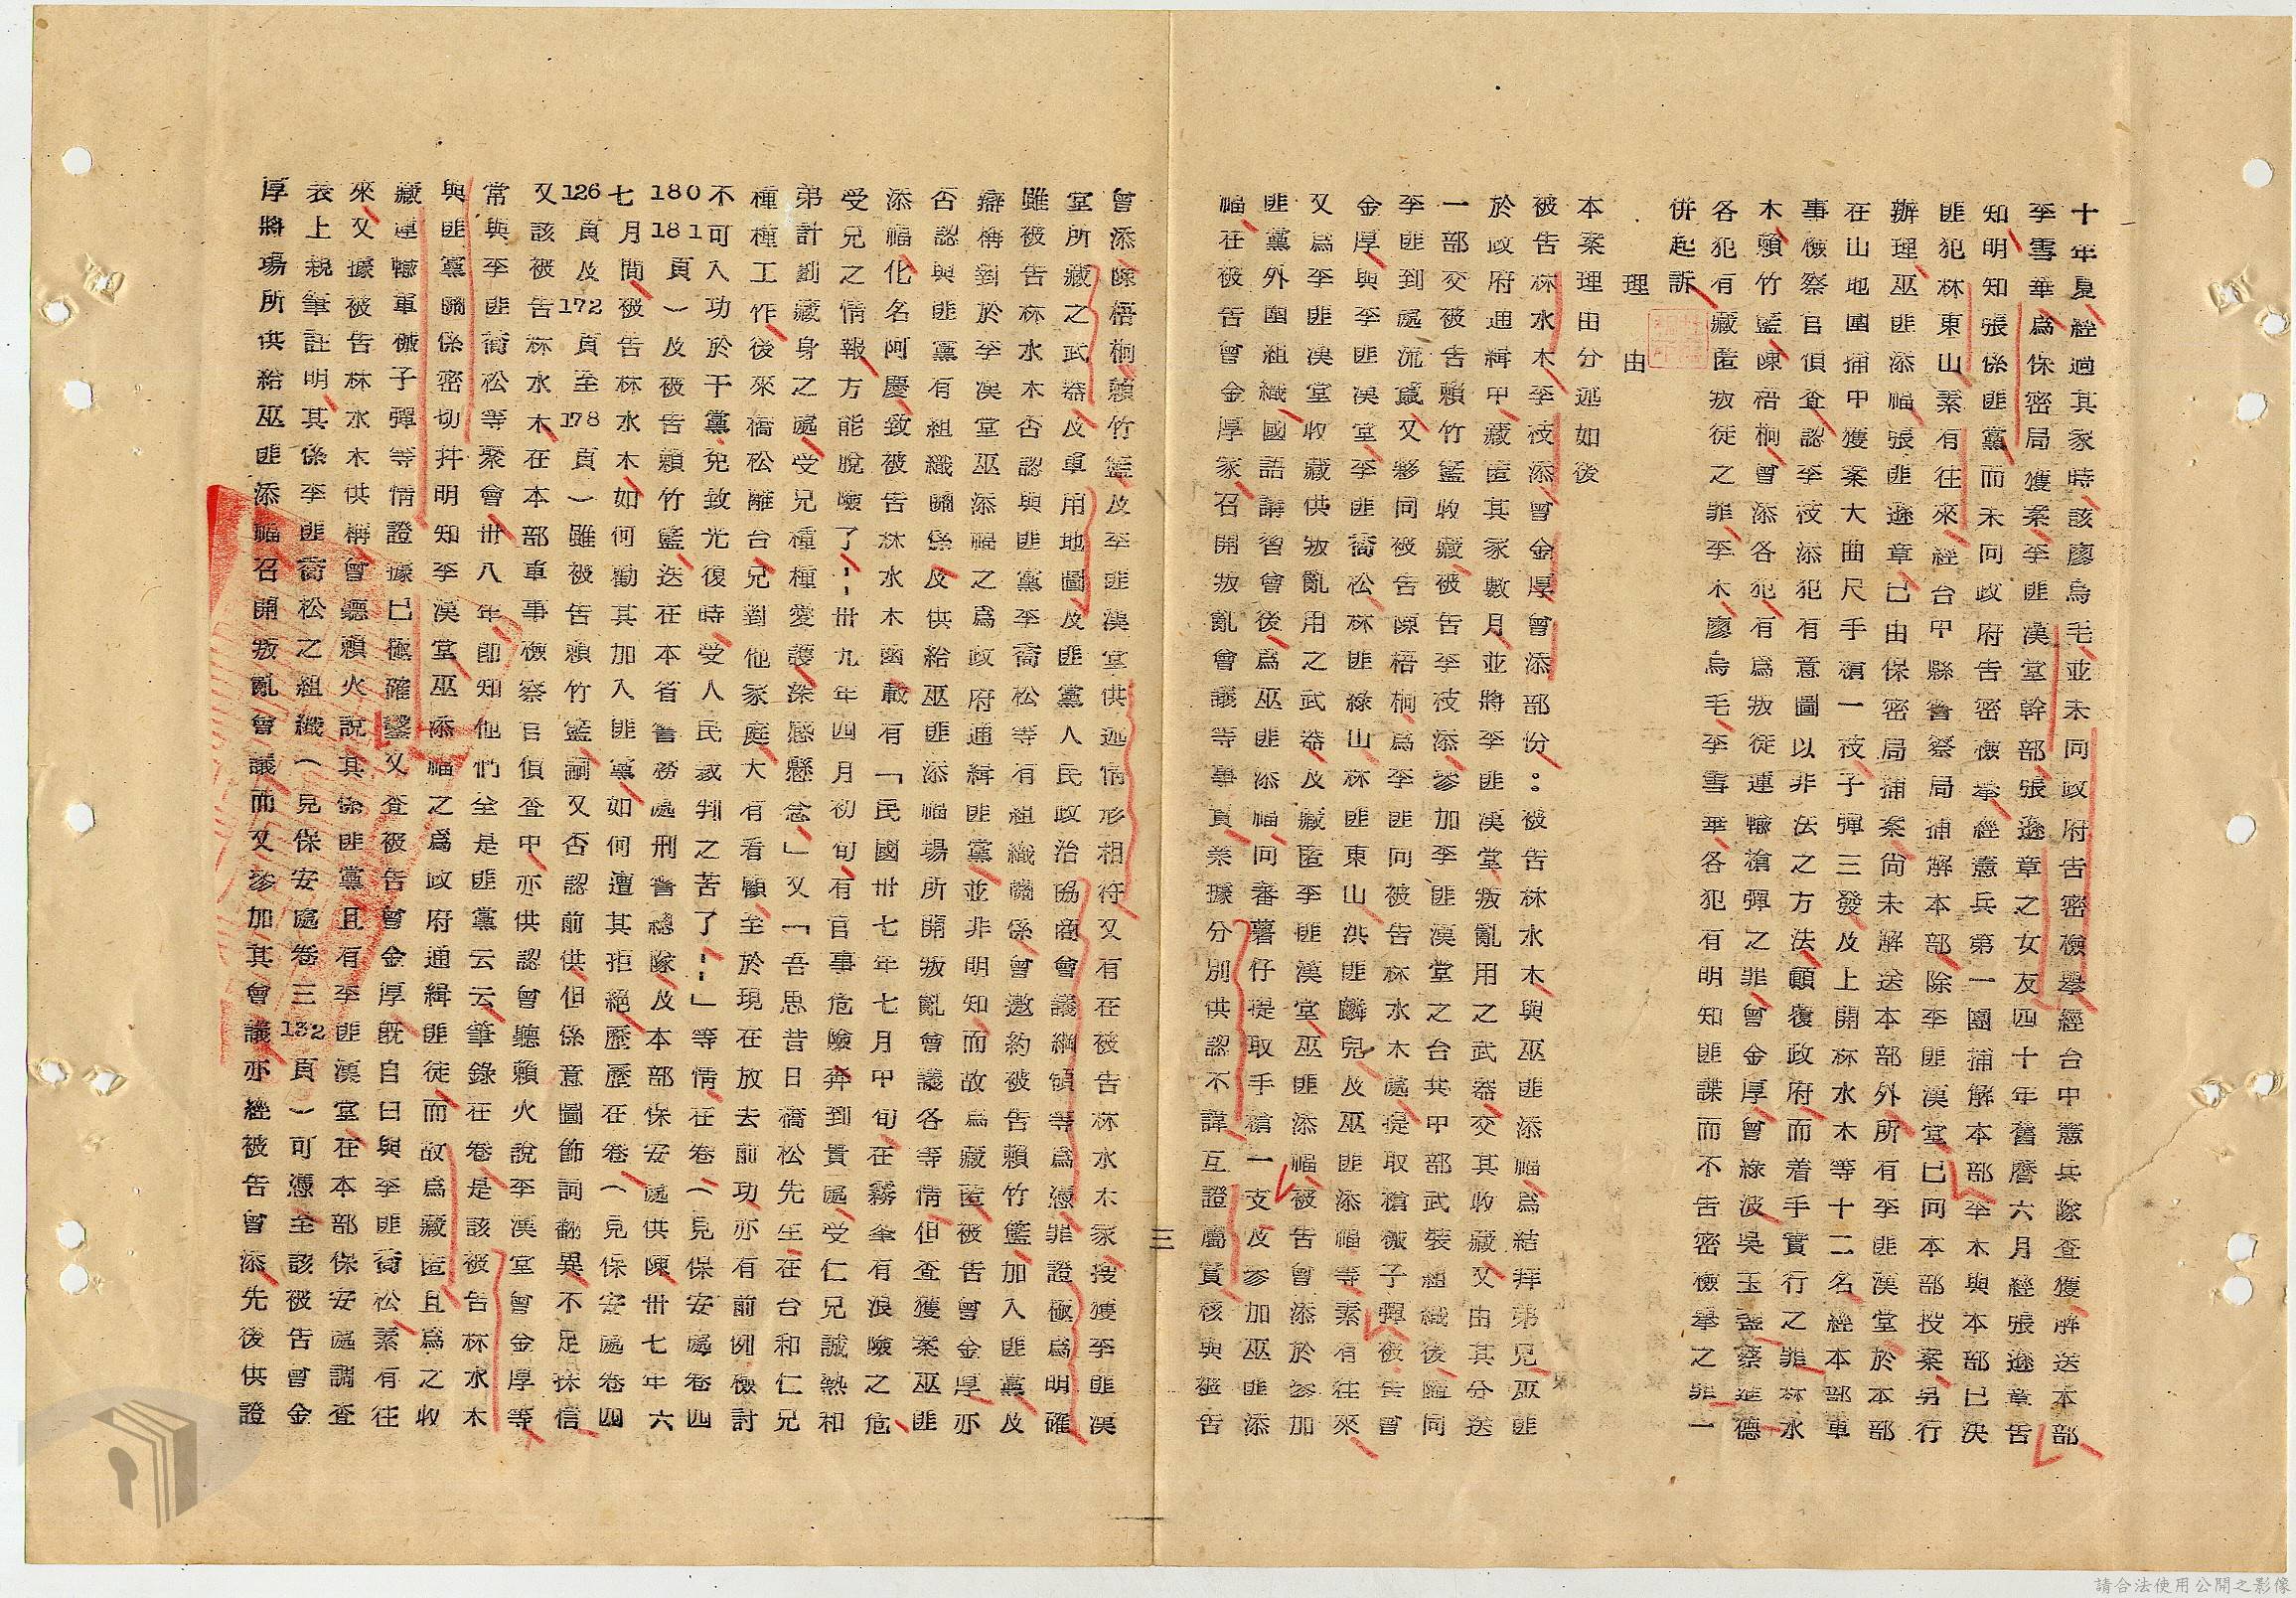 十年夏經過其家時該廖烏毛並未同政府告密檢舉經台中憲兵隊查獲解送本部
李雪華為保密局獲案李匪漢堂幹部張遜章之女友四十年舊曆六月經張遜章告
知明知張係匪黨而未向政府告密檢舉經憲兵第一團捕解本部李木與本部已決
匪犯林東山素有往來經台中縣警察局捕解本部除李匪漢堂已同本部投案另行
辦理巫匪添福張匪遜章已由保密局捕案尚未解送本部外所有李匪漢堂於本部
在山地圍捕中獲案大曲尺手槍一枝子彈三發及上開林水木等十二名經本部軍
事檢察官偵查認李枝添犯有意圖以非法之方法顛覆政府而着手實行之罪林水
木賴竹籃陳梧桐曾添各犯有為叛徒運輸槍彈之罪曾金厚曾綠波吳玉盞蔡進德
各犯有藏匿叛徒之罪李木廖烏毛李雪華各犯有明知匪諜而不告密檢舉之罪一
併起訴
理由
本案理由分述如後
被告林水木李枝添曾金厚曾添部份：被告林水木與巫匪添福為結拜弟兄巫匪
於政府通緝中藏匿其家數月並將李匪漢堂叛亂用之武器交其收藏又由其分送
一部交被告賴竹籃收藏被告李枝添參加李匪漢堂之台共中部武裝組織後隨同
李匪到處流竄又夥同被告陳梧桐為李匪同被告林水木處提取槍械子彈被告曾
金厚與李匪漢堂李匪喬松林匪綠山林匪東山洪匪麟兒及巫匪添福等素有往來
又為李匪漢堂收藏供叛亂用之武器及藏匿李匪漢堂巫匪添福被告曾添於參加
匪黨外圍組織國語講習會後為巫匪添福同番薯仔提取手槍一支及參加巫匪添
福在被告曾金厚家召開叛亂會議等事實業據分別供認不諱互證屬實核與被告
三
曾添陳梧桐賴竹籃及李匪漢堂供述情形相符又有在被告林水木家搜獲李匪漢
堂所藏之武器及軍用地圖及匪黨人民政治協商會議綱領等為憑罪證極為明確
雖被告林水木否認與匪黨李喬松等有組織關係曾邀約被告賴竹籃加入匪黨及
辯稱對於李漢堂巫添福之為政府通緝匪黨並非明知而故為藏匿被告曾金厚亦
否認與匪黨有組織關係及供給巫匪添福場所開叛亂會議各等情但查獲案巫匪
添福化名阿慶致被告林水木函載有「民國卅七年七月中旬在霧峯有浪險之危
受兄之情報方能脫險了……卅九年四月初旬有官事危險奔到貴處受仁兄誠熱和
弟計劃藏身之處受兄種種愛護深感懸念」又「吾思昔日橋松先生在台和仁兄
種種工作後來橋松離台兄對他家庭大有看顧至於現在放去前功亦有前例檢討
不可入功於干黨免致光復時受人民裁判之苦了……」等情在卷（見保安處卷四
180 181頁）及被告賴竹籃送在本省警務處刑警總隊及本部保安處供陳卅七年六
七月間被告林水木如何勸其加入匪黨如何遭其拒絕歷歷在卷（見保安處卷四
126頁及172頁至178頁）雖被告賴竹籃嗣又否認前供但係意圖飾詞翻異不足採信
又該被告林水木在本部軍事檢察官偵查中亦供認曾聽賴火說李漢堂曾金厚等
常與李匪喬松等聚會卅八年卽知他們全是匪黨云云筆錄在卷是該被告林水木
與匪黨關係密切并明知李漢堂巫添福之為政府通緝匪徒而故為藏匿且為之收
藏運輸軍械子彈等情證據已極確鑿又查被告曾金厚既自曰與李匪喬松素有往
來又據被告林水木供稱曾聽賴火說其係匪黨且有李匪漢堂在本部保安處調查
表上親筆註明其係李匪喬松之組織（見保安處卷三132頁）可憑至該被告曾金
厚將場所供給巫匪添福召開叛亂會議而又參加其會議亦經被告曾添先後供證
請合法使用公開之影像